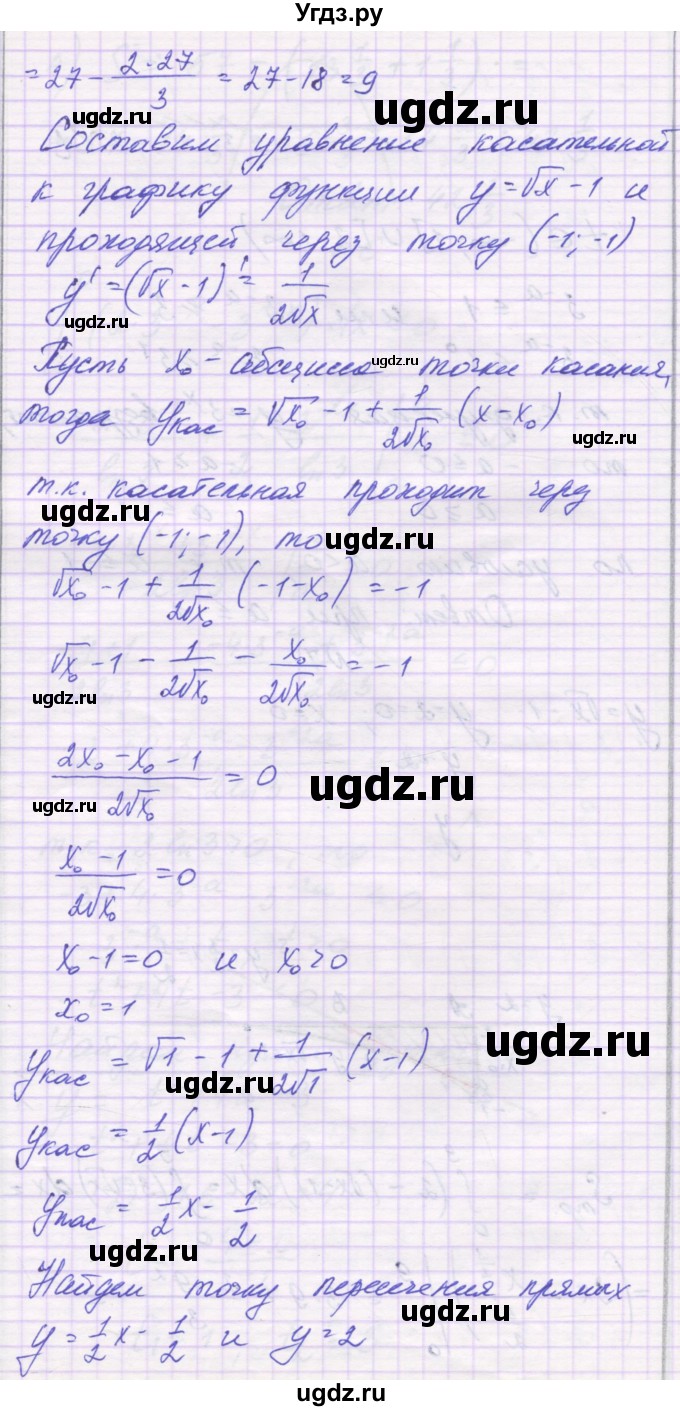 Угдз.ру
= 27 - 2·27/3 = 27 - 18 = 9
ugdz.ru
Составим уравнение касательной
к графику функции y = √x - 1 и
проходящей через точку (-1; -1)
y' = (√x - 1)' = 1/2√x
ugdz.ru
ugdz.ru
Пусть x₀ - абсцисса точки касания,
ugdz.ru
тогда yкас = √x₀ - 1 + 1/2√x₀ (x - x₀)
ugdz.ru
т.к. касательная проходит через
ugdz.ru
точку (-1; -1), то
ugdz.ru
√x₀ - 1 + 1/2√x₀ (-1 - x₀) = -1
√x₀ - 1 - 1/2√x₀ - x₀/2√x₀ = -1
ugdz.ru
2x₀ - x₀ - 1/2√x₀ = 0
ugdz.ru
ugdz.ru
x₀ - 1/2√x₀ = 0
x₀ - 1 = 0 и x₀ > 0
x₀ = 1
ugdz.ru
yкас = √1 - 1 + 1/2√1 (x - 1)
ugdz.ru
yкас = 1/2 (x - 1)
yкас = 1/2 x - 1/2
ugdz.ru
Найдем точку пересечения прямых
ugdz.ru
y = 1/2 x - 1/2 и y = 2
ugdz.ru